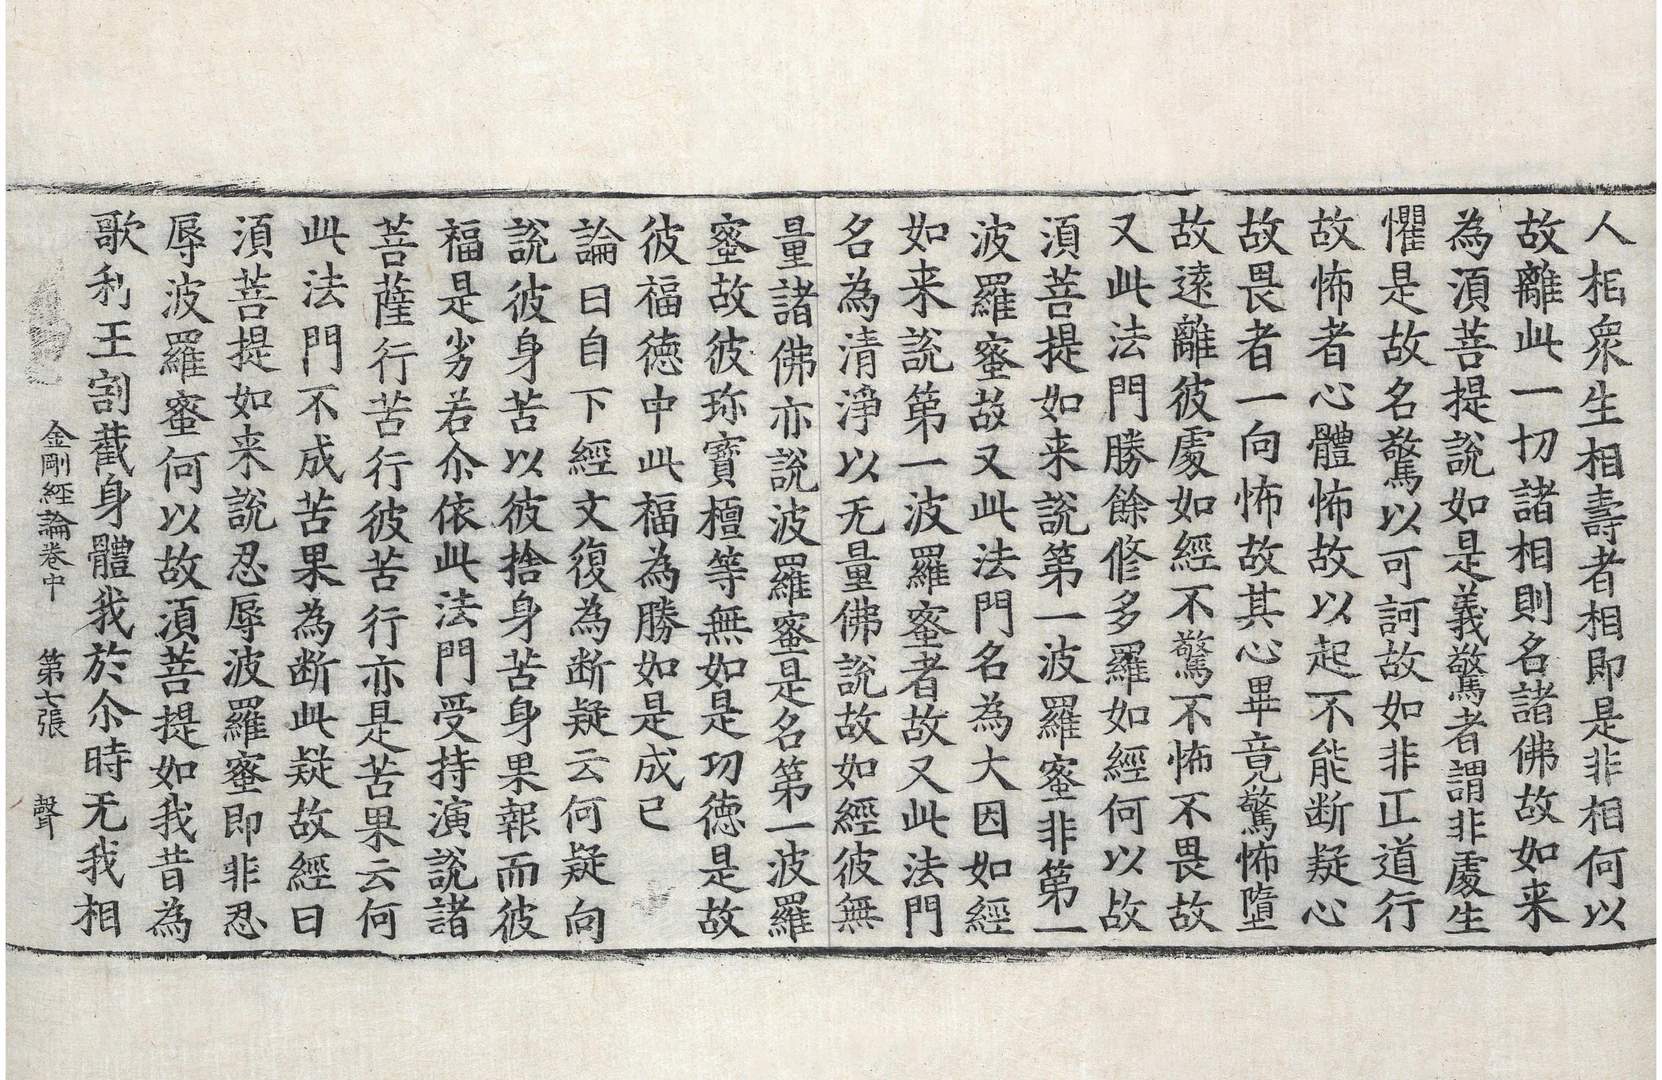 人相衆生相壽者相即是非相何以
故離此一切諸相則名諸佛故如来
為湏菩提說如是義驚者謂非處生
懼是故名驚以可訶故如非正道行
故怖者心體怖故以起不能断疑心
故畏者一向怖故其心畢竟驚怖墮
故遠離彼處如經不驚不怖不畏故
又此法門勝餘修多羅如經何以故
湏菩提如来說第一波羅蜜非第一
波羅蜜故又此法門名為大因如經
如来說第一波羅蜜者故又此法門
名為清淨以无量佛說故如經彼無
量諸佛亦說波羅蜜是名第一波羅
蜜故彼珎寶檀等無如是功德是故
彼福德中此福為勝如是成已
論曰自下經文復為断疑云何疑向
說彼身苦以彼捨身苦身果報而彼
福是劣若尒依此法門受持演說諸
菩薩行苦行彼苦行亦是苦果云何
此法門不成苦果為断此疑故經曰
湏菩提如来說忍辱波羅蜜即非忍
辱波羅蜜何以故湏菩提如我昔為
歌利王割截身體我於尒時无我相
金剛經論卷中 第七張 聲